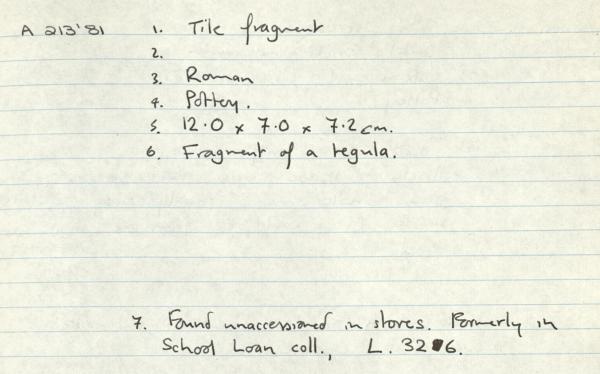 A 213'81 1. Tile fragment
2.
3. Roman
4. Pottery.
5. 12.0 x 7.0 x 7.2 cm.
6. Fragment of a tegula.
7. Found unaccessioned in stores. Formerly in
School Loan coll., L. 326.